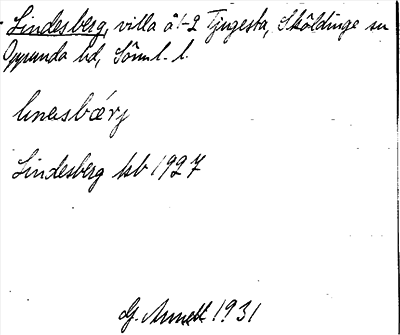 Lindesberg, villa å 1-2 Tjugesta, Sköldinge sn
Oppunda hd, Söml. l.
linasbärj
Lindesberg kb 1927
G. Annell 1931